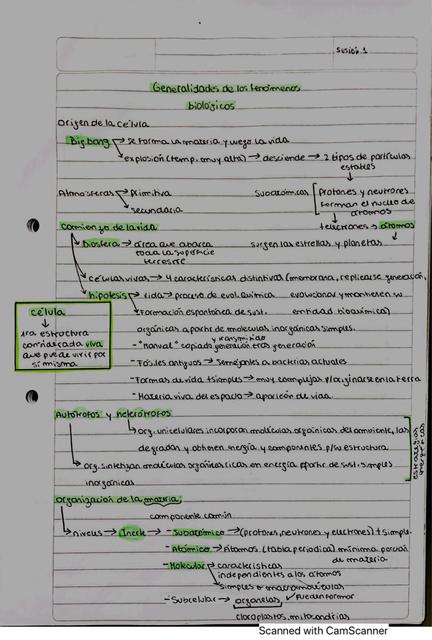 Sesión 1
Generalidades de los fenómenos
biológicos
Origen de la célula
Big bang → se forma la materia y luego la vida
→ explosión (temp. muy alta) → desciende → 2 tipos de partículas
estables
Atmósferas → primitiva
→ secundaria
Subatómicas
protones y neutrones
forman el núcleo de
átomos
→ electrones → átomos
Comienzo de la vida
surgen las estrellas y planetas
→ Biosfera → área que abarca
toda la superficie
terrestre
→ células vivas → 4 características distintivas (membrana, replicarse generación,
evolucionar y mantienen su
entidad bioquímica)
→ hipótesis → vida → proceso de evol. química
→ Formación espontánea de sust.
orgánicas a partir de moléculas inorgánicas simples.
y transmitido
- "Manual" copiado generación tras generación
- Fósiles antiguos → semejantes a bacterias actuales
- Formas de vida + simples → muy complejas p/originarse en la tierra
- Materia viva del espacio → aparición de vida.
célula
↓
1ra estructura
considerada viva
que puede vivir por
sí misma
Autótrofos y heterótrofos
→ org. unicelulares incorporan moléculas orgánicas del ambiente, las
degradan y obtienen energía y componentes p/su estructura
→ org. sintetizan moléculas orgánicas ricas en energía a partir de sust. simples
inorgánicas
estrategias
energéticas
Organización de la materia
componente común
→ niveles → Inerte → - Subatómico → (protones, neutrones y electrones) + simple.
- Atómico → Átomos (tabla periódica) mínima porción
de materia
- Molecular → características
independientes a los átomos
→ simples o macromoléculas
- Subcelular → organelas ✓ Pueden formar
↓
cloroplastos, mitocondrias
Scanned with CamScanner